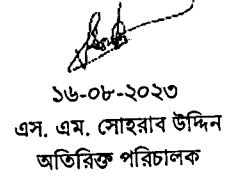 ১৬-০৮-২০২৩
এস. এম. সোহরাব উদ্দিন
অতিরিক্ত পরিচালক